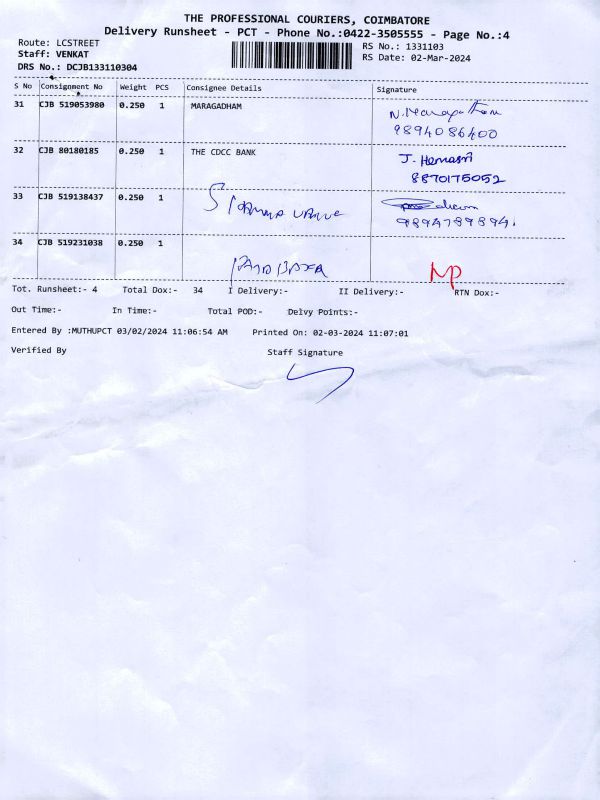 THE PROFESSIONAL COURIERS, COIMBATORE
Delivery Runsheet - PCT - Phone No.:0422-3505555 - Page No.:4
Route: LCSTREET
RS No.: 1331103
Staff: VENKAT
RS Date: 02-Mar-2024
DRS No.: DCJB133110304
S No Consignment No Weight PCS Consignee Details Signature
31 CJB 519053980 0.250 1 MARAGADHAM
9894086400
32 CJB 80180185 0.250 1 THE CDCC BANK J. Hemasri
8870175052
33 CJB 519138437 0.250 1
9894789894
34 CJB 519231038 0.250 1 NP
Tot. Runsheet:- 4 Total Dox:- 34 I Delivery:- II Delivery:- RTN Dox:-
Out Time:- In Time:- Total POD:- Delvy Points:-
Entered By :MUTHUPCT 03/02/2024 11:06:54 AM Printed On: 02-03-2024 11:07:01
Verified By Staff Signature